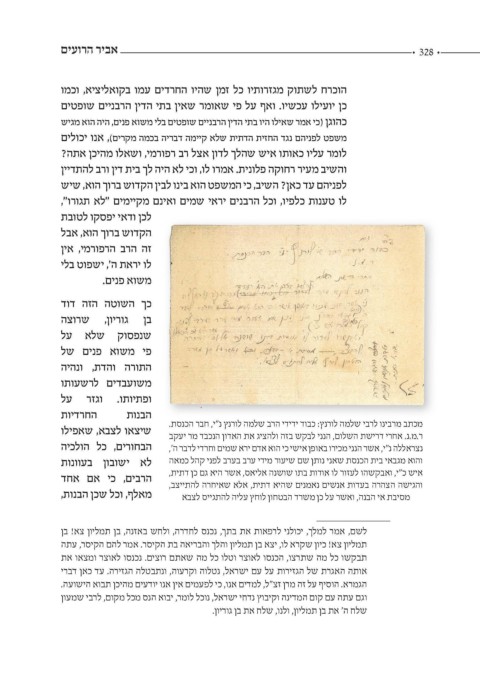 328
אביר הרועים
הוכרח לשתוק מגזרותיו כל זמן שהיו החרדים עמו בקואליציא, וכמו
כן יועילו עכשיו. ואף על פי שאומר שאין בתי הדין הרבניים שופטים
כהוגן (כי אמר שאילו היו בתי הדין הרבניים שופטים בלי משוא פנים, היה הוא מגיש
משפט לפניהם נגד החזית הדתית שלא קיימה דבריה בכמה מקרים), אנו יכולים
לומר עליו כאותו איש שהלך לדון אצל רב רפורמי, ושאלו מהיכן אתה?
והשיב מעיר רחוקה פלונית. אמרו לו, וכי לא היה לך בית דין ורב להתדיין
לפניהם עד כאן? השיב, כי המשפט הוא בינו לבין הקדוש ברוך הוא, שיש
לו טענות כלפיו, וכל הרבנים יראי שמים ואינם מקיימים "לא תגורו",
לכן ודאי יפסקו לטובת
הקדוש ברוך הוא, אבל
זה הרב הרפורמי, אין
לו יראת ה', ישפוט בלי
משוא פנים.
כך השוטה הזה דוד
בן גוריון, שרוצה
שנפסוק שלא על
פי משוא פנים של
התורה והדת, ונהיה
משועבדים לרשעותו
ופתיותו. וגזר על
הבנות החרדיות
שיצאו לצבא, שאפילו
הבחורים, כל הולכיה
לא ישובון בעוונות
הרבים, כי אם אחד
מאלף, וכל שכן הבנות,
מכתב מרבינו לרבי שלמה לורנץ: כבוד ידידי הרב שלמה לורנץ נ"י, חבר הכנסת.
ר.מ.ג. אחרי דרישת השלום, הנני לבקש בזה ולהציג את האדון הנכבד מר יעקב
נצראללה נ"י, אשר הנני מכירו באופן אישי כי הוא אדם ירא שמים וחרדי לדבר ה',
והוא מגבאי בית הכנסת שאני נותן שם שיעור מידי ערב בערב לפני קהל כמאה
איש כ"י, ואבקשהו לעזור לו אודות בתו שושנה אליאס, אשר היא גם כן דתית,
והגישה הצהרה בעדות אנשים נאמנים שהיא דתית, אלא שאיחרה להתייצב,
מסיבת אי הבנה, ואשר על כן משרד הבטחון לוחץ עליה להתגייס לצבא
לשם, אמר למלך, יכולני לרפאות את בתך, נכנס לחדרה, ולחש באזנה, בן תמליון צא! בן
תמליון צא! כיון שקרא לו, יצא בן תמליון והלך והבריאה בת הקיסר. אמר להם הקיסר, עתה
תבקשו כל מה שתרצו, הכנסו לאוצר וטלו כל מה שאתם רוצים. נכנסו לאוצר ומצאו את
אותה האגרת של הגזירות על עם ישראל, נטלוה וקרעוה, ונתבטלה הגזירה. עד כאן דברי
הגמרא. הוסיף על זה מרן זצ"ל, למדים אנו, כי לפעמים אין אנו יודעים מהיכן תבוא הישועה.
וגם עתה עם קום המדינה וקיבוץ נדחי ישראל, נוכל לומר, יבוא הנס מכל מקום, לרבי שמעון
שלח ה' את בן תמליון, ולנו, שלח את בן גוריון.